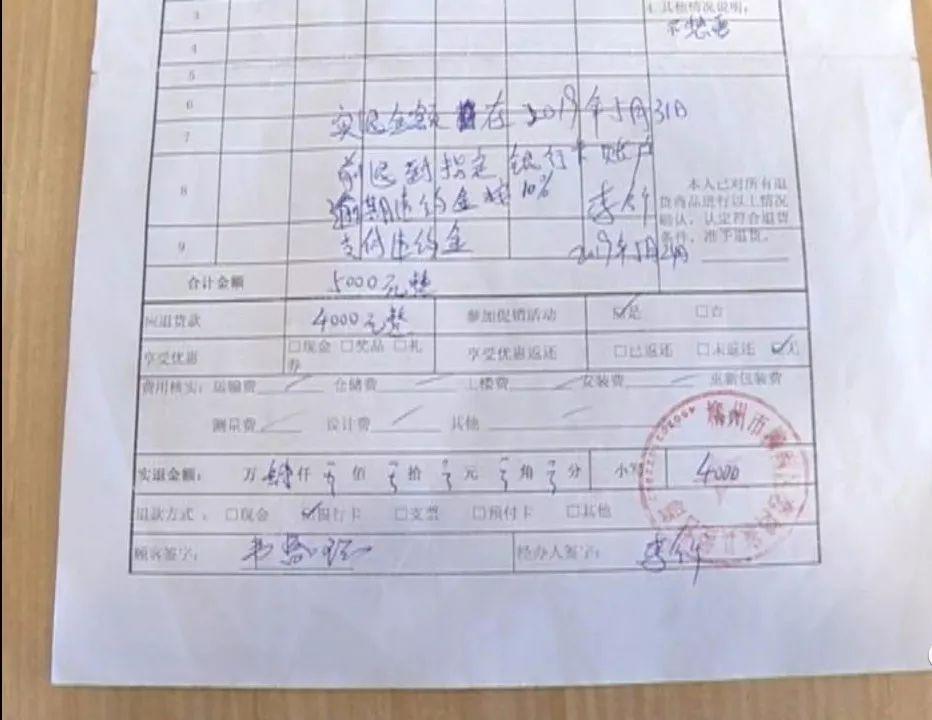 3
4.其他情况说明:
不想要
4
5
6
实退金额 在2019年1月31日
7
前退到指定银行卡账户
8
逾期违约金按10%
李竹
支付违约金
2019年1月2日
9
本人已对所有退
货商品进行以上情况
确认,认定符合退货
条件,准予退货。
合计金额 5000元整
应退货款 4000元整 参加促销活动 ☑是 □否
享受优惠 □现金 □奖品 □礼券 享受优惠返还 □已返还 □未返还 ☑无
费用核实: 运输费 仓储费 上楼费 安装费 重新包装费
测量费 设计费 其他
实退金额: 万 肆仟 零佰 零拾 零元 零角 零分 小写 4000
退款方式: □现金 ☑银行卡 □支票 □预付卡 □其他
顾客签字: 韦 经办人签字: 李竹
柳州市